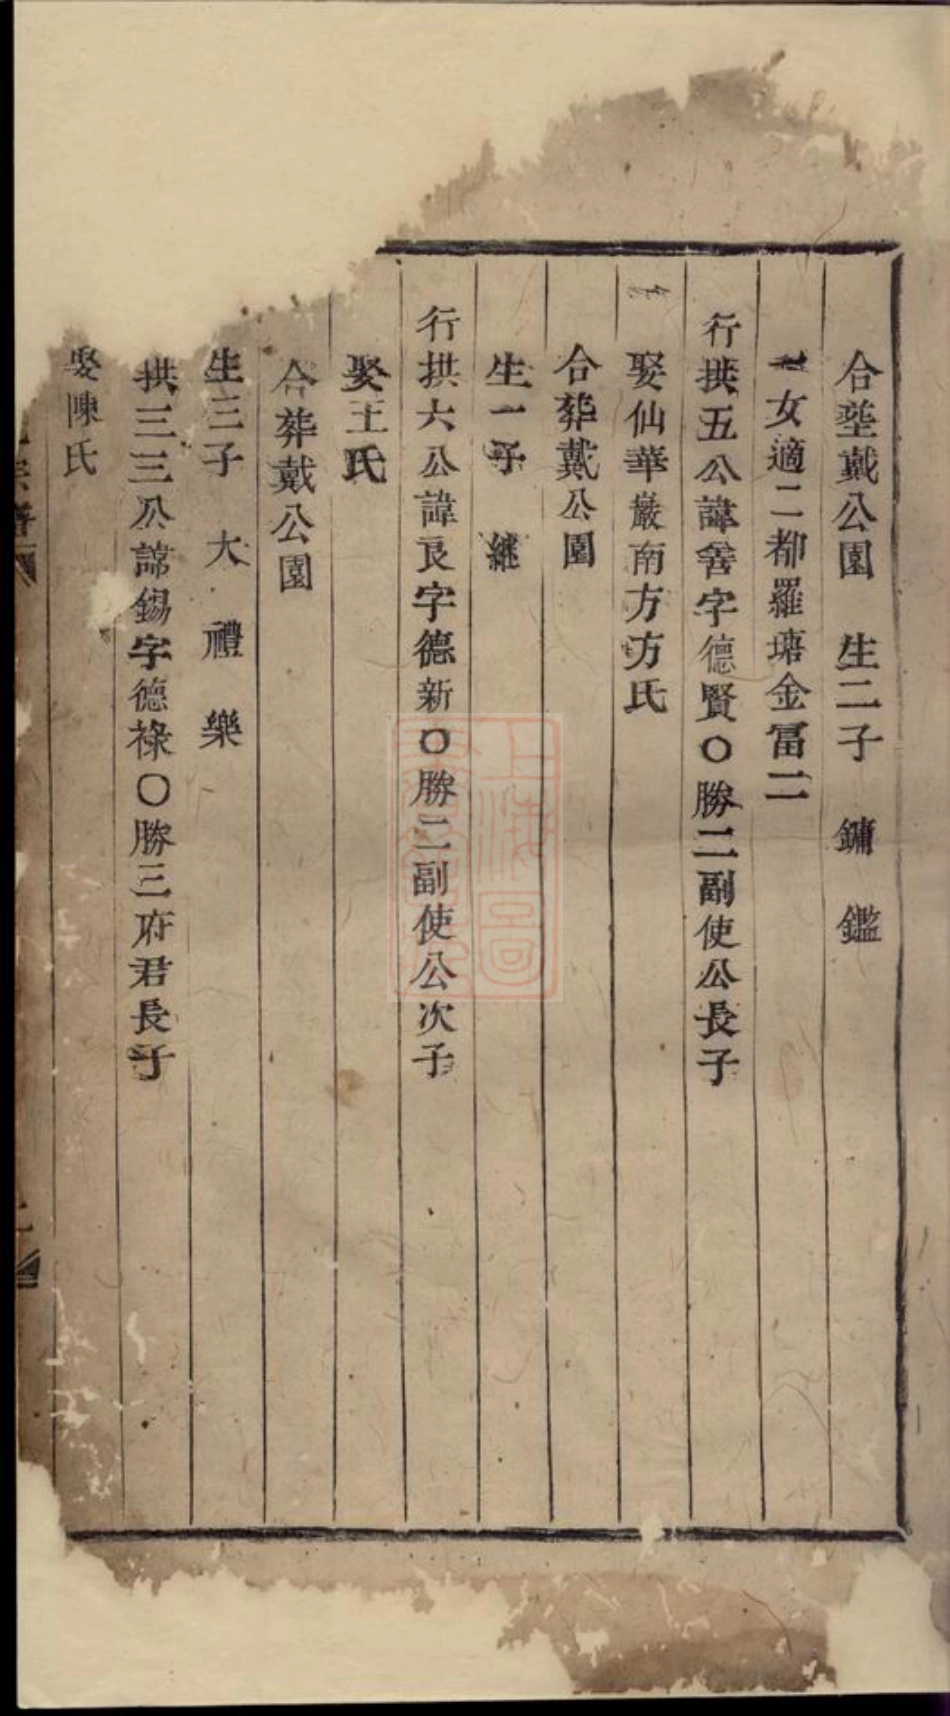 合塟戴公園　生二子　鏞　鑑
一女適二都羅塘金冨二
行拱五公諱善字德賢〇勝二副使公長子
娶仙華巖南方方氏
合葬戴公園
生一子　継
行拱六公諱良字德新〇勝二副使公次子
娶王氏
合葬戴公園
生三子　大　禮　樂
拱三三公諱錫字德祿〇勝三府君長子
娶陳氏
宗譜
上海圖書館藏